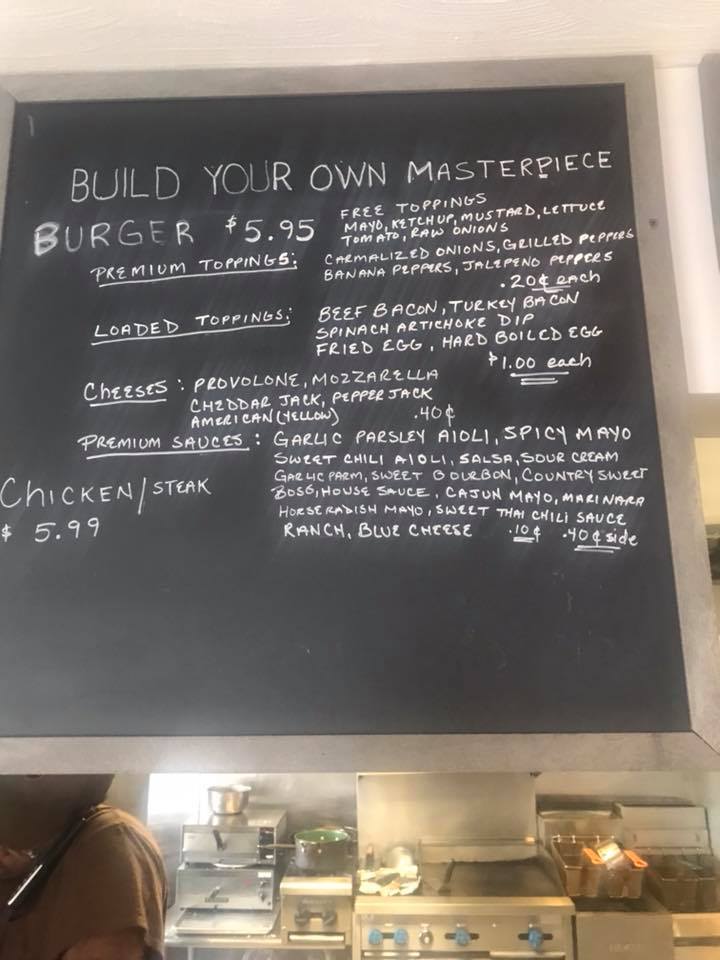 BUILD YOUR OWN MASTERPIECE
BURGER $5.95
FREE TOPPINGS
MAYO, KETCHUP, MUSTARD, LETTUCE
TOMATO, RAW ONIONS
PREMIUM TOPPINGS:
CARMALIZED ONIONS, GRILLED PEPPERS
BANANA PEPPERS, JALEPENO PEPPERS
.20¢ each
LOADED TOPPINGS:
BEEF BACON, TURKEY BACON
SPINACH ARTICHOKE DIP
FRIED EGG, HARD BOILED EGG
$1.00 each
CHEESES: PROVOLONE, MOZZARELLA
CHEDDAR JACK, PEPPER JACK
AMERICAN (YELLOW) .40¢
PREMIUM SAUCES: GARLIC PARSLEY AIOLI, SPICY MAYO
SWEET CHILI AIOLI, SALSA, SOUR CREAM
GARLIC PARM, SWEET BOURBON, COUNTRY SWEET
BOSS, HOUSE SAUCE, CAJUN MAYO, MARINARA
HORSERADISH MAYO, SWEET THAI CHILI SAUCE
RANCH, BLUE CHEESE .10¢ .40¢ side
CHICKEN/STEAK
$ 5.99